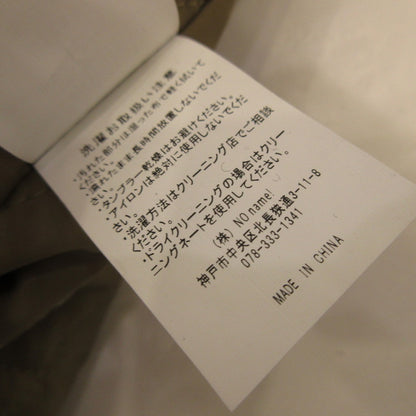 洗濯お取扱い注意
汚れた部分は湿った布で軽く拭いて
ください。
濡れたまま長時間放置しないでくだ
さい。
・タンブラー乾燥はお避けください。
・アイロンは絶対に使用しないでくだ
さい。
・洗濯方法はクリーニング店でご相談
ください。
・ドライクリーニングの場合はクリー
ニングネートを使用してください。
(株) NO name!
神戸市中央区北長狭通3-11-8
078-333-1341
MADE IN CHINA